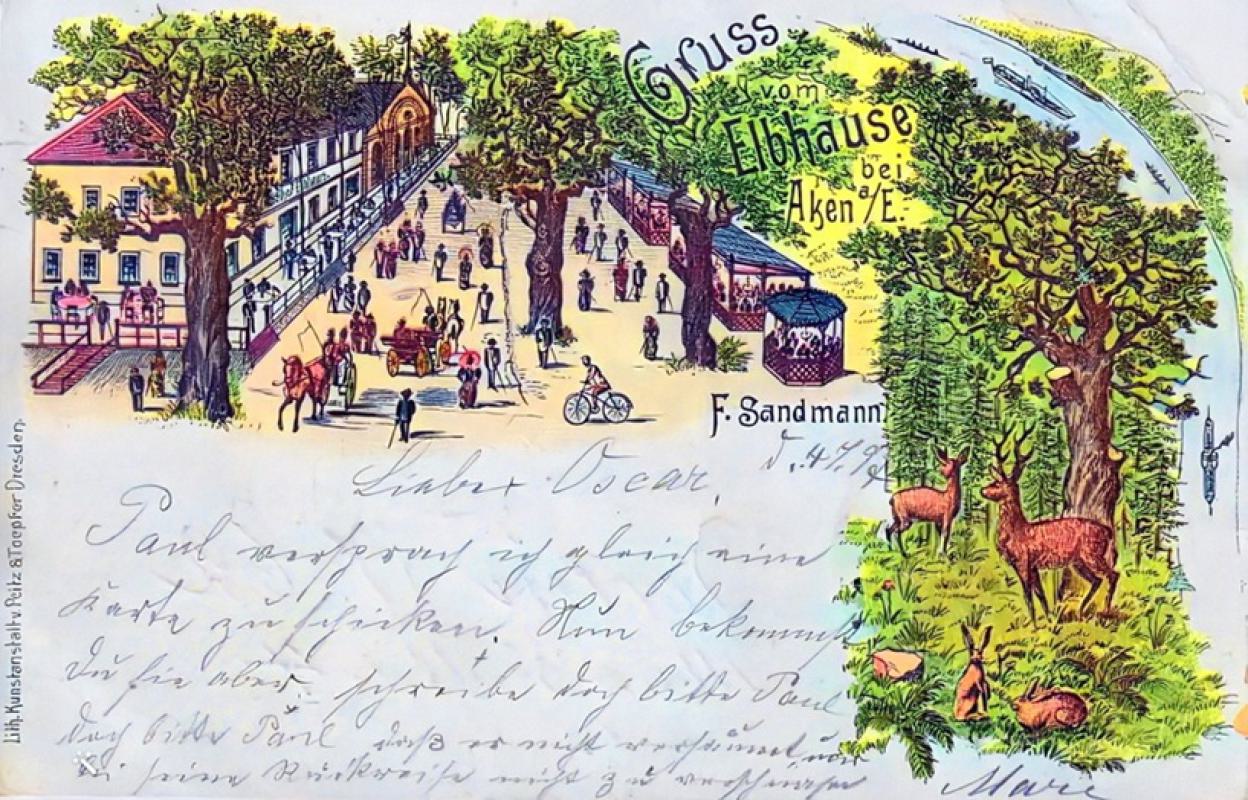 Gruss
vom
Elbhause
bei
Aken a/E.
F. Sandmann
d. 4.7.
Lieber Oscar,
Paul versprach ich gleich eine
Karte zu schicken. Nun bekommst
Du sie aber. schreibe doch bitte Paul
doch bitte Paul daß er nicht versäumt, um
seine Rückreise nicht zu
Marie
Lith. Kunstanstalt v. Peitz & Toepfer Dresden.